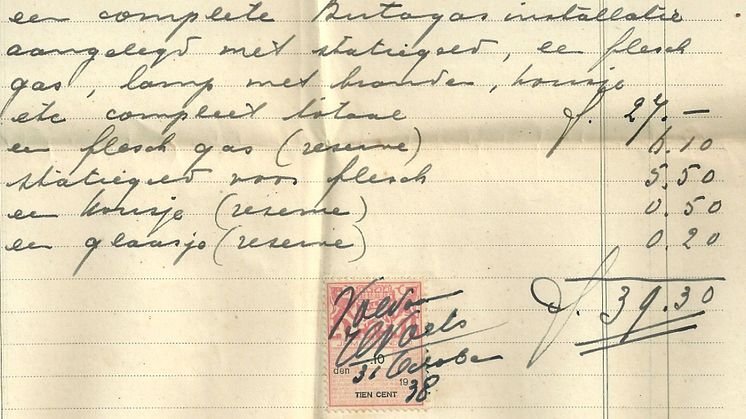 een complete Butagas installatie
aangelegd met statiegeld, een flesch
gas, lamp met brander, kousje
etc compleet totaal f. 27.—
een flesch gas (reserve) 6.10
statiegeld voor flesch 5.50
een kousje (reserve) 0.50
een glaasje (reserve) 0.20
f. 39.30
Voldaan
10
den 31 October
1938
TIEN CENT